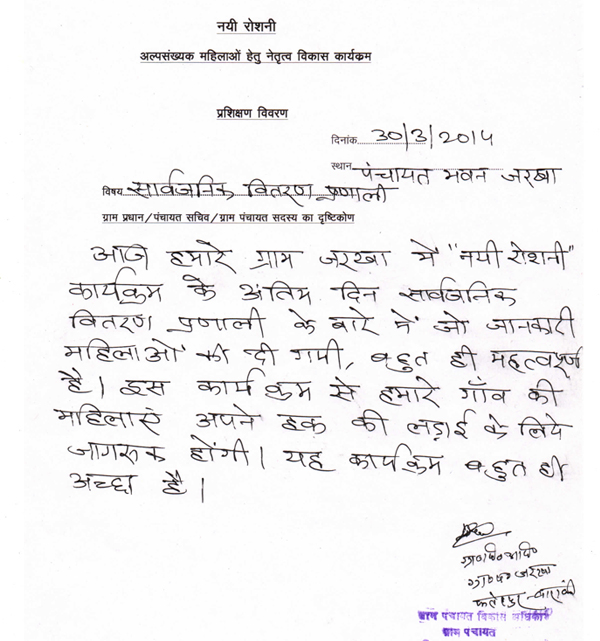 नयी रोशनी
अल्पसंख्यक महिलाओं हेतु नेतृत्व विकास कार्यक्रम
प्रशिक्षण विवरण
दिनांक 30/3/2014
स्थान पंचायत भवन जरखा
विषय सार्वजनिक वितरण प्रणाली
ग्राम प्रधान/पंचायत सचिव/ग्राम पंचायत सदस्य का दृष्टिकोण
आज हमारे ग्राम जरखा में "नयी रोशनी"
कार्यक्रम के अंतिम दिन सार्वजनिक
वितरण प्रणाली के बारे में जो जानकारी
महिलाओं को दी गयी, बहुत ही महत्वपूर्ण
है। इस कार्यक्रम से हमारे गाँव की
महिलाएं अपने हक की लड़ाई के लिये
जागरुक होंगी। यह कार्यक्रम बहुत ही
अच्छा है।
ग्रा०वि०अधि०
ग्रा०पं० जरखा
फतेहपुर-बाराबंकी
ग्राम पंचायत विकास अधिकारी
ग्राम पंचायत